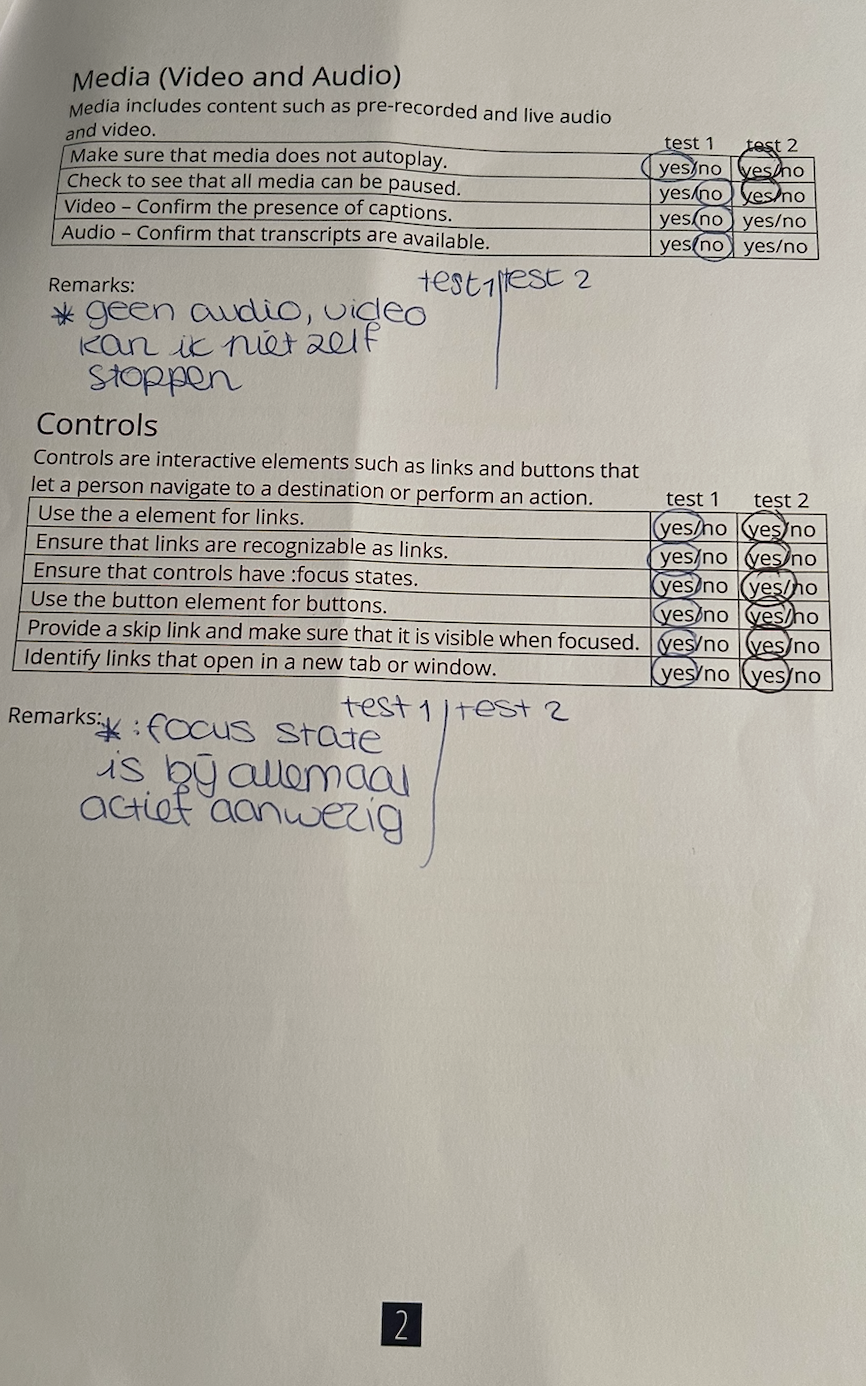 Media (Video and Audio)
Media includes content such as pre-recorded and live audio
and video.
test 1 test 2
Make sure that media does not autoplay. yes/no yes/no
Check to see that all media can be paused. yes/no yes/no
Video – Confirm the presence of captions. yes/no yes/no
Audio – Confirm that transcripts are available. yes/no yes/no
Remarks: test 1 test 2
* geen audio, video
kan ik niet zelf
stoppen
Controls
Controls are interactive elements such as links and buttons that
let a person navigate to a destination or perform an action. test 1 test 2
Use the a element for links. yes/no yes/no
Ensure that links are recognizable as links. yes/no yes/no
Ensure that controls have :focus states. yes/no yes/no
Use the button element for buttons. yes/no yes/no
Provide a skip link and make sure that it is visible when focused. yes/no yes/no
Identify links that open in a new tab or window. yes/no yes/no
Remarks: test 1 test 2
* :focus state
is bij allemaal
actief aanwezig
2